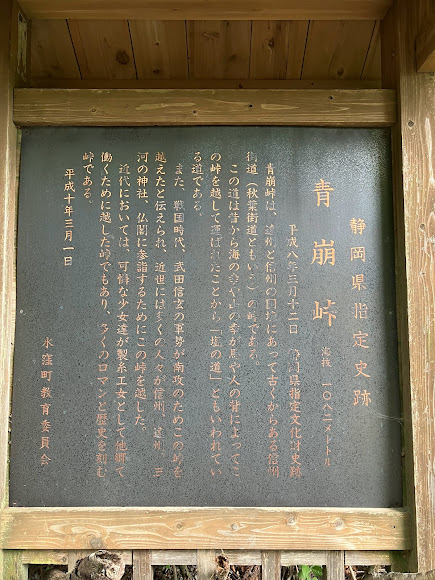 静岡県指定史跡
青崩峠 海抜 一〇八二メートル
平成八年三月十二日 静岡県指定文化財史跡
青崩峠は、遠州と信州の国境にあって古くからある信州
街道（秋葉街道ともいう）の峠である。
この道は昔から海の幸や山の幸が馬や人の背によってこ
の峠を越して運ばれたことから「塩の道」ともいわれてい
る道である。
また、戦国時代、武田信玄の軍勢が南攻のためこの峠を
越えたと伝えられ、近世には多くの人々が信州、遠州、三
河の神社、仏閣に参詣するためにこの峠を越した。
近代においては、可憐な少女達が製糸工女として他郷で
働くために越した峠でもあり、多くのロマンと歴史を刻む
峠である。
平成十年三月一日
水窪町教育委員会